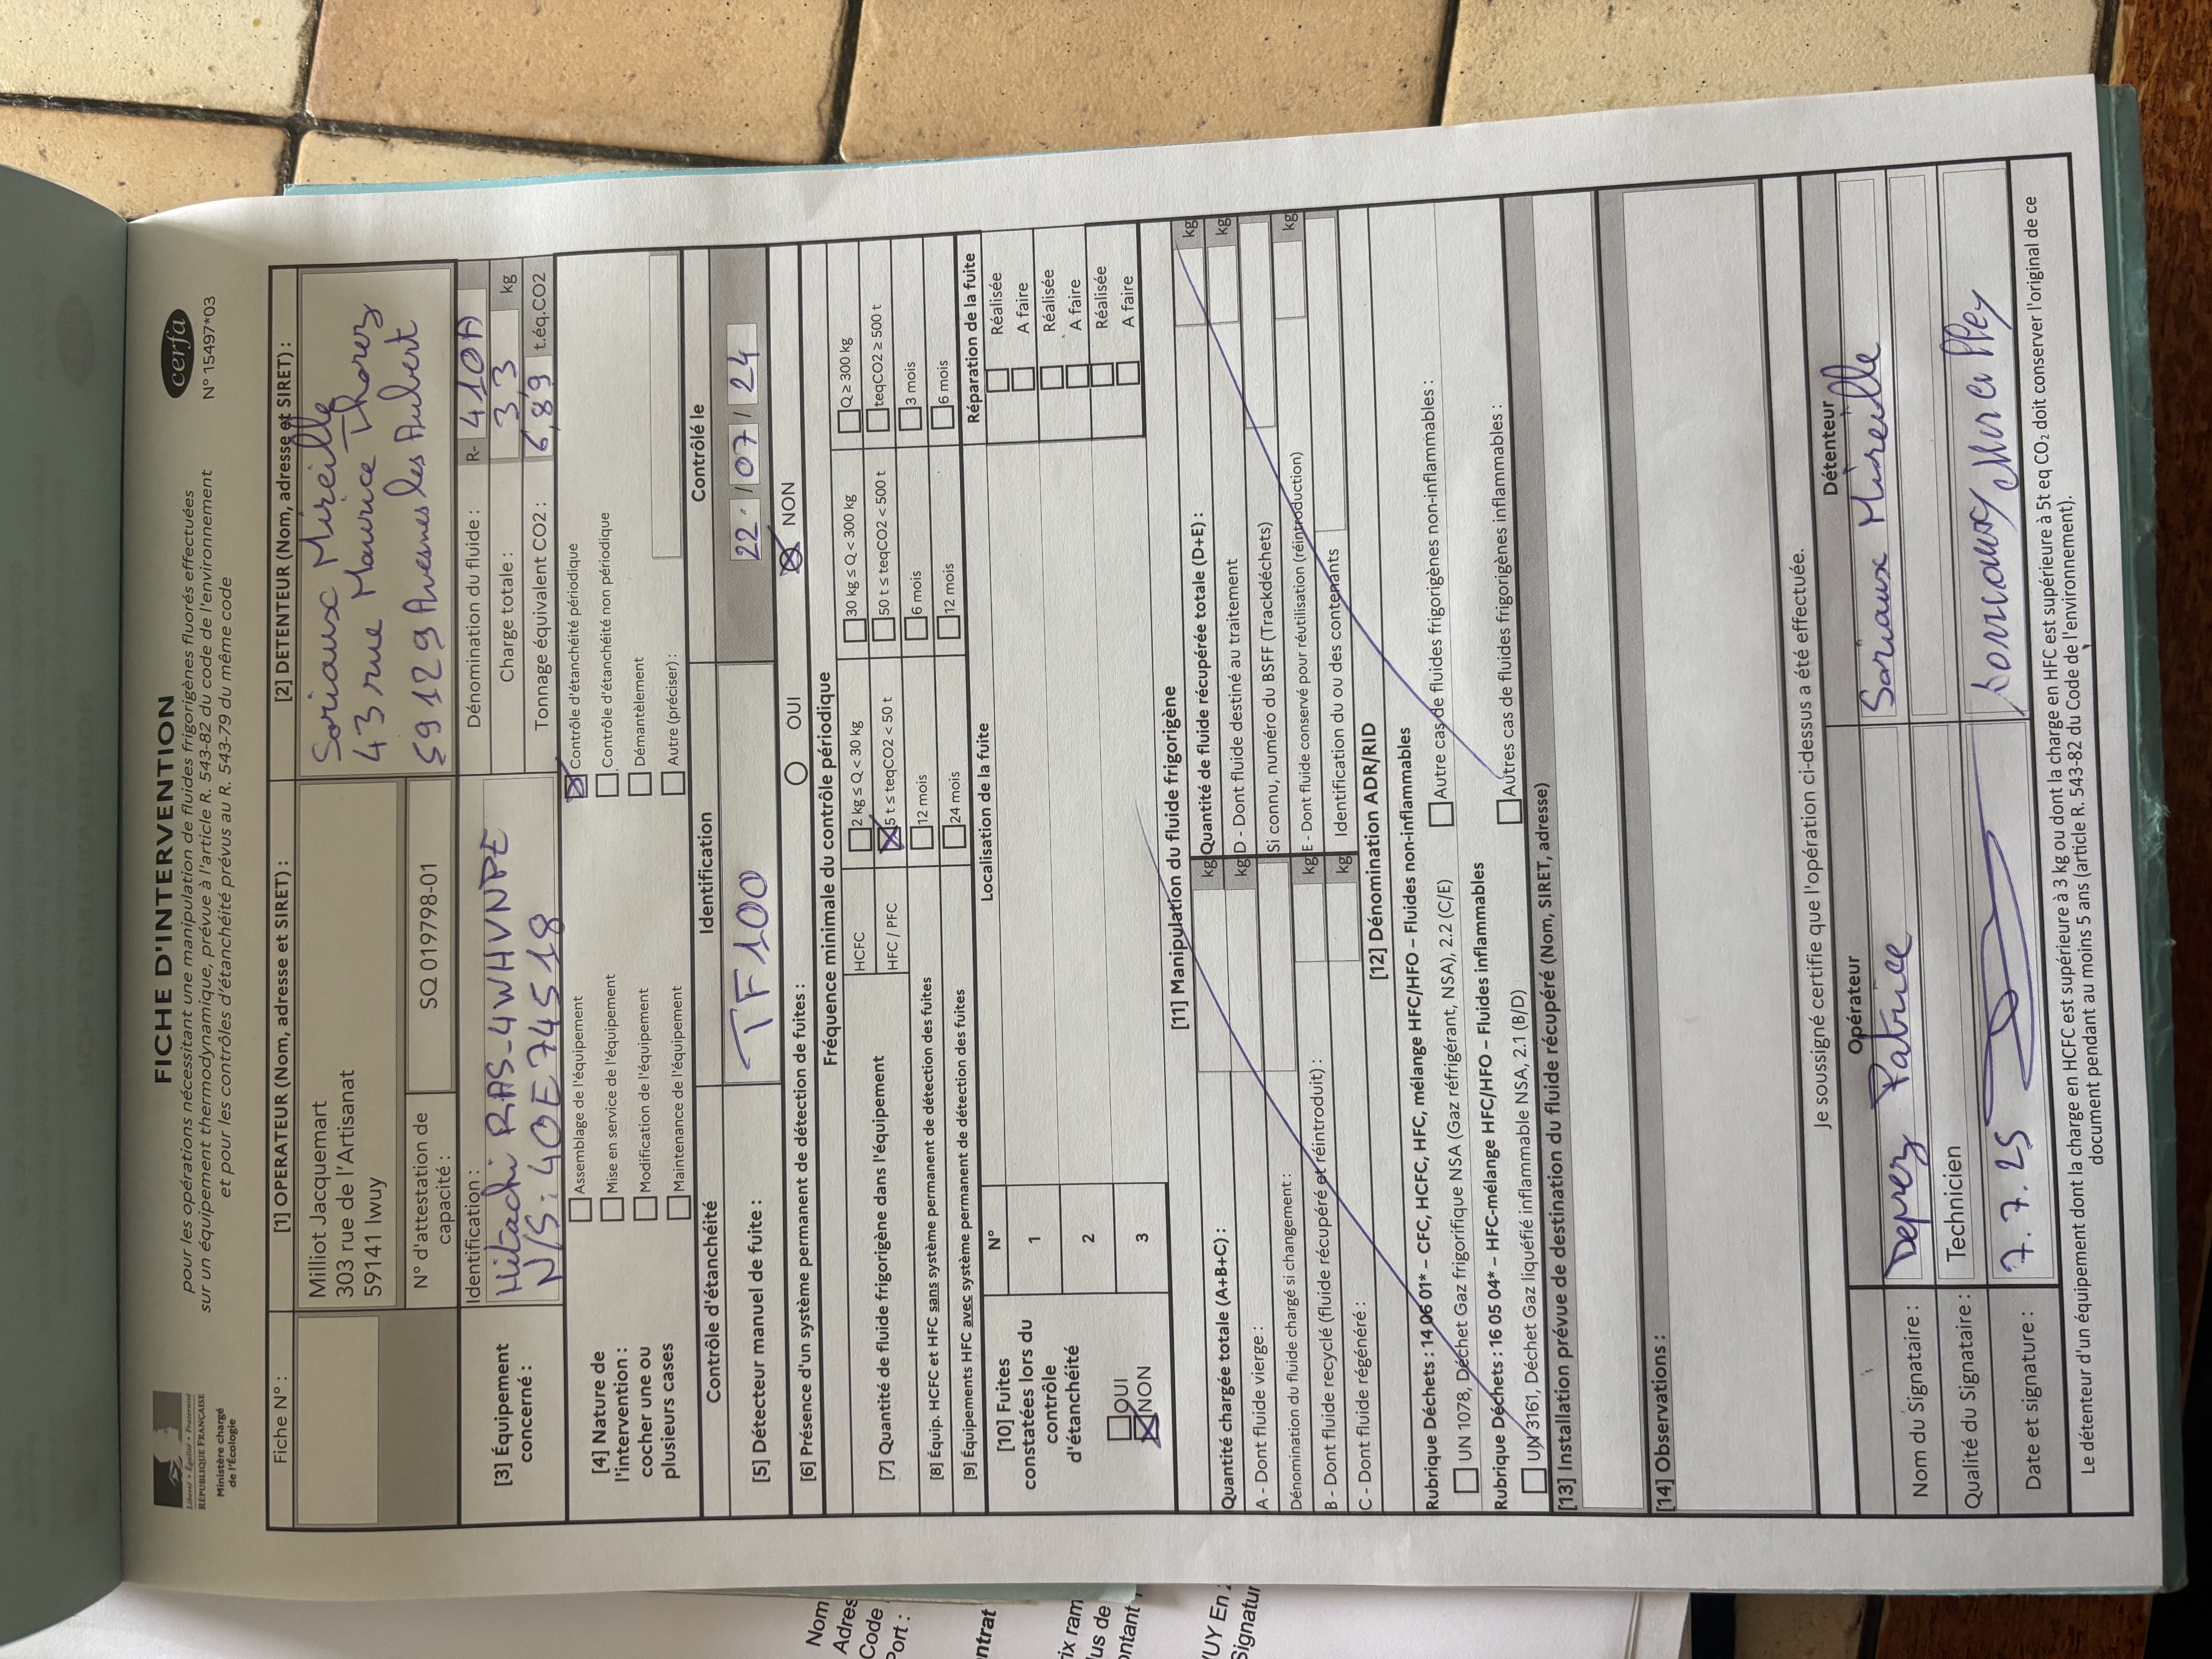 Liberté • Égalité • Fraternité
RÉPUBLIQUE FRANÇAISE
Ministère chargé
de l'Écologie
FICHE D'INTERVENTION
pour les opérations nécessitant une manipulation de fluides frigorigènes fluorés effectuées
sur un équipement thermodynamique, prévue à l'article R. 543-82 du code de l'environnement
et pour les contrôles d'étanchéité prévus au R. 543-79 du même code
cerfa
N° 15497*03
Fiche N° :
[1] OPERATEUR (Nom, adresse et SIRET) :
Milliot Jacquemart
303 rue de l'Artisanat
59141 Iwuy
N° d'attestation de
capacité :
SQ 019798-01
[2] DETENTEUR (Nom, adresse et SIRET) :
Soriaux Mireille
43 rue Maurice Thorez
59129 Avesnes les Aubert
[3] Équipement
concerné :
Identification :
Hitachi RAS-4WHVNPE
N/S: 40E74518
Dénomination du fluide : R- 410A
Charge totale : 3,3 kg
Tonnage équivalent CO2 : 6,89 t.éq.CO2
[4] Nature de
l'intervention :
cocher une ou
plusieurs cases
Assemblage de l'équipement
Mise en service de l'équipement
Modification de l'équipement
Maintenance de l'équipement
Contrôle d'étanchéité périodique
Contrôle d'étanchéité non périodique
Démantèlement
Autre (préciser) :
Contrôle d'étanchéité Identification Contrôlé le
[5] Détecteur manuel de fuite : TF100 22 / 07 / 24
[6] Présence d'un système permanent de détection de fuites : OUI NON
Fréquence minimale du contrôle périodique
[7] Quantité de fluide frigorigène dans l'équipement
HCFC 2 kg ≤ Q < 30 kg 30 kg ≤ Q < 300 kg Q ≥ 300 kg
HFC / PFC 5 t ≤ teqCO2 < 50 t 50 t ≤ teqCO2 < 500 t teqCO2 ≥ 500 t
[8] Équip. HCFC et HFC sans système permanent de détection des fuites 12 mois 6 mois 3 mois
[9] Équipements HFC avec système permanent de détection des fuites 24 mois 12 mois 6 mois
[10] Fuites
constatées lors du
contrôle
d'étanchéité
OUI
NON
N° Localisation de la fuite Réparation de la fuite
1 Réalisée
A faire
2 Réalisée
A faire
3 Réalisée
A faire
[11] Manipulation du fluide frigorigène
Quantité chargée totale (A+B+C) : kg
A - Dont fluide vierge : kg
Dénomination du fluide chargé si changement :
B - Dont fluide recyclé (fluide récupéré et réintroduit) : kg
C - Dont fluide régénéré : kg
Quantité de fluide récupérée totale (D+E) : kg
D - Dont fluide destiné au traitement kg
Si connu, numéro du BSFF (Trackdéchets)
E - Dont fluide conservé pour réutilisation (réintroduction) kg
Identification du ou des contenants
[12] Dénomination ADR/RID
Rubrique Déchets : 14 06 01* – CFC, HCFC, HFC, mélange HFC/HFO – Fluides non-inflammables
UN 1078, Déchet Gaz frigorifique NSA (Gaz réfrigérant, NSA), 2.2 (C/E) Autre cas de fluides frigorigènes non-inflammables :
Rubrique Déchets : 16 05 04* – HFC-mélange HFC/HFO – Fluides inflammables
UN 3161, Déchet Gaz liquéfié inflammable NSA, 2.1 (B/D) Autres cas de fluides frigorigènes inflammables :
[13] Installation prévue de destination du fluide récupéré (Nom, SIRET, adresse)
[14] Observations :
Je soussigné certifie que l'opération ci-dessus a été effectuée.
Opérateur Détenteur
Nom du Signataire : Deprez Patrice Soriaux Mireille
Qualité du Signataire : Technicien
Date et signature : 7.7.25
Le détenteur d'un équipement dont la charge en HCFC est supérieure à 3 kg ou dont la charge en HFC est supérieure à 5t eq CO₂ doit conserver l'original de ce
document pendant au moins 5 ans (article R. 543-82 du Code de l'environnement).
Nom
Adres
Code
Port :
ntrat
ix ram
lus de
ontant
UY En
Signatur